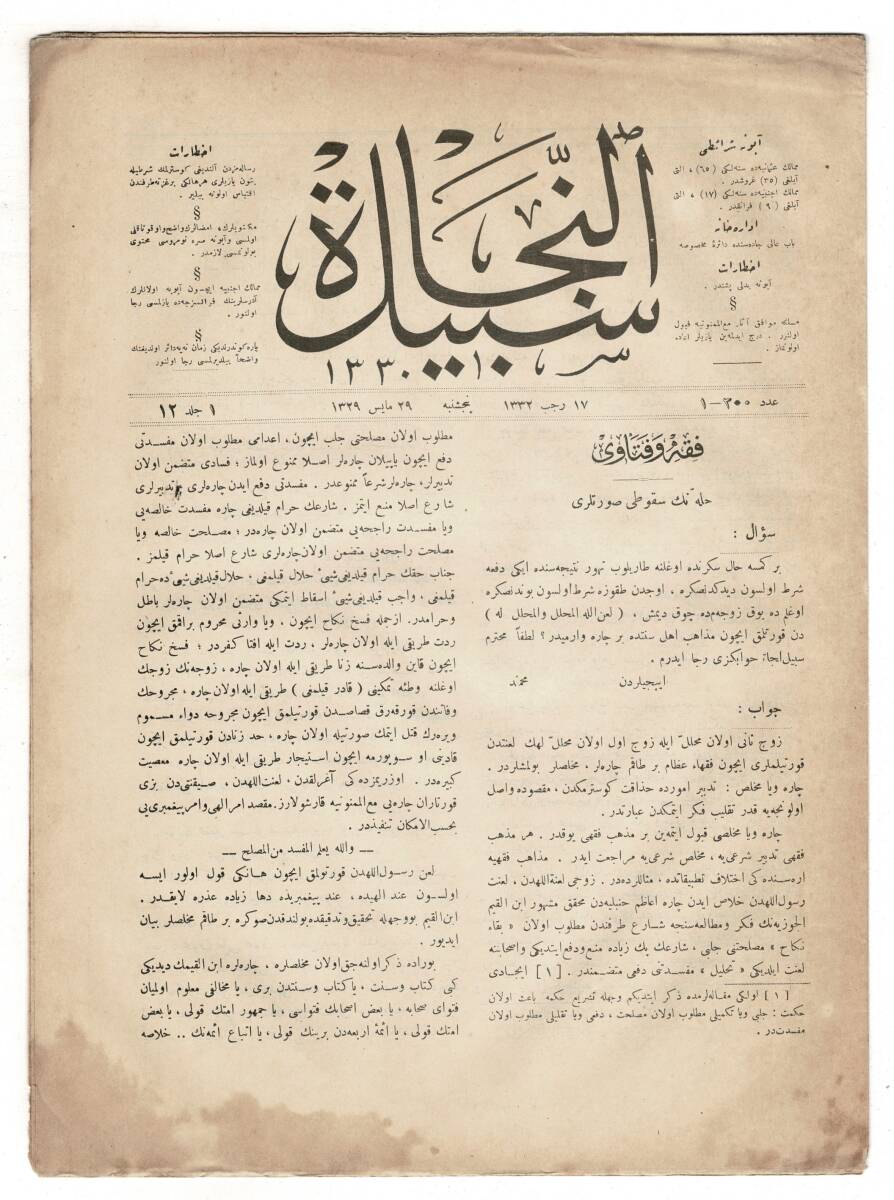 آبونه شرائطی
ممالك عثمانیه‌ده سنه‌لكی (٦٥) ، التی
آیلغی (٣٥) غروشدر .
ممالك اجنبیه‌ده سنه‌لكی (١٧) ، التی
آیلغی (٩) فرانقدر .
اداره خانه
باب عالی جاده‌سنده دائرهٔ مخصوصه
اخطارات
آبونه بدلی پشندر .
§
مسلكه موافق آثار مع‌الممنونیه قبول
اولنور . درج ایدلمه‌ین یازیلر اعاده
اولونماز .
سبیل النجاة
١٣٣٠
اخطارات
رساله‌مزدن آلندیغی كوسترلمك شرطیله
بتون یازیلری هرهانكی برغزته‌طرفندن
اقتباس اولونه بیلیر .
§
مكتوبلرك، امضالرك واضح‌واوقوناقلی
اولسی وآبونه صره نومروسی محتوی
بولونسی لازمدر .
§
ممالك اجنبیه ایچون آبونه اولانلرك
آدرسلرینك فرانسزجه‌ده یازلسی رجا
اولنور .
§
پاره كوندرلدیكی زمان نه‌یه‌دائر اولدیغنك
واضحاً بیلدیرلمسی رجا اولنور
عدد ٣٠٠-١
١٧ رجب ١٣٣٢
پنجشنبه
٢٩ مایس ١٣٢٩
١ جلد ١٢
فقه وفتاوی
حله نك سقوطی صورتلری
سؤال :
بر كمسه حال سكرنده اوغلنه طاریلوب تهور نتیجه‌سنده ایكی دفعه
شرط اولسون دیدكدنصكره ، اوجدن طقوزه شرط اولسون بوندنصكره
اوغلم ده یوق زوجه‌م‌ده چوق دیمش ، ( لعن‌الله المحلل والمحلل له )
دن قورتلمق ایچون مذاهب اهل سنتده بر چاره وارمیدر ؟ لطفاً محترم
سبیل‌النجاة حوابكزی رجا ایدرم .
ایبجیلردن
محمد
جواب :
زوج ثانی اولان محللّ ایله زوج اول اولان محللّ لهك لعنتدن
قورتیلملری ایچون فقهاء عظام بر طاقم چاره‌لر ، مخلصلر بولمشلردر .
چاره ویا مخلص : تدبیر اموره حذاقت كوسترمكدن ، مقصوده واصل
اولونجه‌یه قدر تقلیب فكر ایتمكدن عبارتدر .
چاره ویا مخلصی قبول ایتمه‌ین بر مذهب فقهی یوقدر . هر مذهب
فقهی تدبیر شرعی‌یه ، مخلص شرعی‌یه مراجعت ایدر . مذاهب فقهیه
اره‌سنده كی اختلاف تطبیقاتده ، مثاللرده‌در . زوجی لعنةاللهدن ، لعنت
رسول‌اللهدن خلاص ایدن چاره اعاظم حنبلیه‌دن محقق مشهور ابن القیم
الجوزیه‌نك فكر ومطالعه‌سنجه شارع طرفندن مطلوب اولان « بقاء
نكاح » مصلحتنی جلبی ، شارعك پك زیاده منع‌ودفع‌ایتدیكی واصحابنه
لعنت ایلدیكی « تحلیل » مفسدتنی دفعی متضمندر . [ ١ ] ایجادی
[ ١ ] اولكی مقاله‌لرمده ذكر ایتدیكم وجهله تشریع حكمه باعث اولان
حكمت : جلبی ویا تكمیلی مطلوب اولان مصلحت ، دفعی ویا تقلیلی مطلوب اولان
مفسدت‌در .
مطلوب اولان مصلحتی جلب ایچون ، اعدامی مطلوب اولان مفسدتی
دفع ایچون یاپیلان چاره‌لر اصلا ممنوع اولماز ؛ فسادی متضمن اولان
تدبیرلر، چاره‌لر شرعاً ممنوعدر . مفسدتی دفع ایدن چاره‌لری تدبیرلری
شارع اصلا منع ایتمز . شارعك حرام قیلدیغی چاره مفسدت خالصه‌یی
ویا مفسدت راجحه‌یی متضمن اولان چاره‌در ؛ مصلحت خالصه ویا
مصلحت راجحه‌یی متضمن اولان‌چاره‌لری شارع اصلا حرام قیلمز .
جناب حقك حرام قیلدیغی شیئ حلال قیلمغی ، حلال‌قیلدیغی شیئ ده‌حرام
قیلمغی ، واجب قیلدیغی شیئ اسقاط ایتمكی متضمن اولان چاره‌لر باطل
وحرامدر. ازجمله فسخ نكاح ایچون ، ویا وارثی محروم براقمق ایچون
ردت طریقی ایله اولان چاره‌لر ، ردت ایله افتا كفردر ؛ فسخ نكاح
ایچون قاین والده‌سنه زنا طریقی ایله اولان چاره ، زوجه‌نك زوجك
اوغلنه وطئه تمكینی ( قادر قیلمغی ) طریقی ایله اولان چاره ، مجروحك
وفاتندن قورقه‌رق قصاصدن قورتیلمق ایچون مجروحه دواء مسموم
ویره‌رك قتل ایتمك صورتیله اولان چاره ، حد زنادن قورتیلمق ایچون
قادینی او سوپورمه ایچون استیجار طریقی ایله اولان چاره معصیت
كبیره‌در . اوزریمزده‌كی آغرلقدن ، لعنت‌اللهدن، صیقنتی‌دن بزی
قورتاران چاره‌یی مع‌الممنونیه قارشولارز. مقصد امر الهی‌وامر پیغمبری‌یی
بحسب‌الامكان تنفیذدر .
— والله یعلم المفسد من‌المصلح —
لعن رسول‌اللهدن قورتولمق ایچون هانكی قول اولور ایسه
اولسون عند الهیده ، عند پیغمبریده دها زیاده عذره لایقدر .
ابن‌القیم بووجهله تحقیق‌وتدقیقده‌بولندقدن‌صوكره بر طاقم مخلصلر بیان
ایدیور .
بوراده ذكر اولنه‌جق‌اولان مخلصلره ، چاره‌لره ابن القیمك دیدیكی
كبی كتاب وسنت ، یاكتاب وسنتدن بری ، یا مخالفی معلوم اولمیان
فتوای صحابه ، یا بعض اصحابك فتواسی ، یا جمهور امتك قولی ، یا بعض
امتك قولی ، یا ائمهٔ اربعه‌دن برینك قولی ، یا اتباع ائمه‌نك .. خلاصه